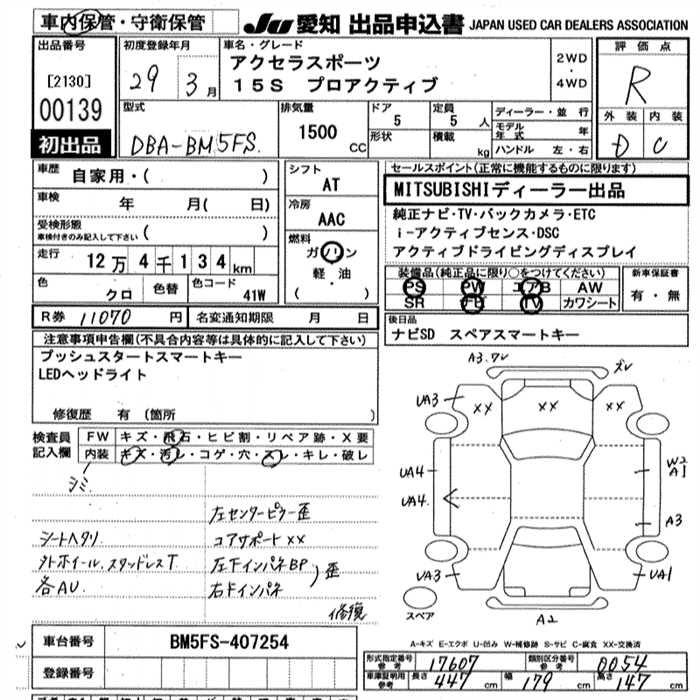 車内保管・守衛保管
JU 愛知 出品申込書 JAPAN USED CAR DEALERS ASSOCIATION
出品番号
[2130]
00139
初出品
初度登録年月
29 3月
車名・グレード
アクセラスポーツ
15S プロアクティブ
2WD
・
4WD
評価点
R
外装 内装
D C
型式
DBA-BM5FS
排気量
1500 CC
ドア
5
形状
定員
5 人
積載
kg
ディーラー・並行
モデル年式 年
ハンドル 左・右
車歴
自家用・( )
車検
年 月( 日)
受検形態
車検付きのみ記入して下さい ( )
走行
12万4千134km
色
クロ
色替
色コード
41W
シフト
AT
冷房
AAC
燃料
ガソリン
軽・油
( )
セールスポイント(正常に機能するものに限ります)
MITSUBISHIディーラー出品
純正ナビ・TV・バックカメラ・ETC
i-アクティブセンス・DSC
アクティブドライビングディスプレイ
装備品(純正品に限り○をつけてください)
PS PW エアB AW
SR ナビ TV カワシート
新車保証書
有・無
R券 11070 円
名変通知期限 月 日
後日品
ナビSD スペアスマートキー
注意事項申告欄(不具合内容等は具体的に記入して下さい)
プッシュスタートスマートキー
LEDヘッドライト
修復歴 有 (箇所 )
検査員
記入欄
FW キズ・飛石・ヒビ割・リペア跡・X要
内装 キズ・汚レ・コゲ・穴・スレ・キレ・破レ
シミ
左センターピラー歪
シートヘタリ
コアサポートXX
外ホイール、スタッドレスT
左下インパネBP
各AU
右下インパネ
歪
修復
A3.ワレ
ズレ
UA3
XX XX XX
UA4
UA4
W2
A1
A3
UA3
UA1
A2
スペア
A-キズ E-エクボ U-凹み W-補修跡 S-サビ C-腐食 XX-交換済
車台番号
BM5FS-407254
登録番号
形式指定番号
参考
17607
類別区分番号
参考
0054
車庫証明用
参考
長さ 447 cm
幅 179 cm
高さ 147 cm